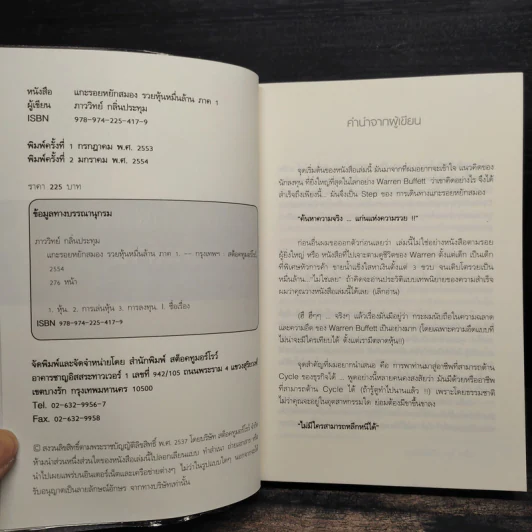 หนังสือ แกะรอยหยักสมอง รวยหุ้นหมื่นล้าน ภาค 1
ผู้เขียน ภาววิทย์ กลิ่นประทุม
ISBN 978-974-225-417-9
พิมพ์ครั้งที่ 1 กรกฎาคม พ.ศ. 2553
พิมพ์ครั้งที่ 2 มกราคม พ.ศ. 2554
ราคา 225 บาท
ข้อมูลทางบรรณานุกรม
ภาววิทย์ กลิ่นประทุม
แกะรอยหยักสมอง รวยหุ้นหมื่นล้าน ภาค 1. -- กรุงเทพฯ : สต็อคทูมอร์โรว์,
2554
หน้า
1. หุ้น. 2. การเล่นหุ้น 3. การลงทุน. I. ชื่อเรื่อง
ISBN 978-974-225-417-9
จัดพิมพ์และจัดจำหน่ายโดย สำนักพิมพ์ สต็อคทูมอร์โรว์
อาคารชาญอิสสระทาวเวอร์ 1 เลขที่ 942/105 ถนนพระราม 4 แขวงสุริยวงศ์
เขตบางรัก กรุงเทพมหานคร 10500
Tel. 02-632-9956-7
Fax. 02-632-9958
© สงวนลิขสิทธิ์ตามพระราชบัญญัติลิขสิทธิ์ พ.ศ. 2537 โดยบริษัท สต็อคทูมอร์โรว์ จำกัด
ห้ามนำส่วนหนึ่งส่วนใดของหนังสือเล่มนี้ไปลอกเลียนแบบ ทำสำเนา ถ่ายเอกสาร หรือ
นำไปเผยแพร่บนอินเตอร์เน็ตและเครือข่ายต่างๆ ไม่ว่าในรูปแบบใดๆ นอกจากได้
รับอนุญาตเป็นลายลักษณ์อักษร จากทางบริษัทเท่านั้น
คำนำจากผู้เขียน
จุดเริ่มต้นของหนังสือเล่มนี้ มันมาจากที่ผมอยากจะเข้าใจ แนวคิดของ
นักลงทุน ที่ยิ่งใหญ่ที่สุดในโลกอย่าง Warren Buffett ว่าเขาคิดอย่างไร จึงได้
สำเร็จถึงเพียงนี้... มันจึงเป็น Step ของ การเดินทางแกะรอยหยักสมอง
"ค้นหาความจริง ... แก่นแห่งความรวย !!"
ก่อนอื่นผมขอออกตัวก่อนเลยว่า เล่มนี้ไม่ใช่อย่างหนังสือตามรอย
ผู้ยิ่งใหญ่ หรือ หนังสือที่ไปเจาะตามดูชีวิตของ Warren ตั้งแต่เด็ก เป็นเด็ก
ที่พิเศษหัวการค้า ขายน้ำแข็งใสหาเงินตั้งแต่ 3 ขวบ จนเติบโตรวยเป็น
หมื่นล้าน... "ไม่ใช่เลย" ถ้าคิดจะอ่านประวัติแบบเทพนิยายของความสำเร็จ
ผมว่าคุณวางหนังสือเล่มนี้ได้เลย (เลิกอ่าน)
(ฮึ ฮึๆๆ ... จริงๆ แล้วเรื่องมันมีอยู่ว่า กระผมนับถือในความฉลาด
และความอึด ของ Warren Buffett เป็นอย่างมาก (โดยเฉพาะความอึดแบบที่
ไม่น่าจะมีใครเทียบได้ ตั้งแต่เรามีตลาดหุ้น!!)
จุดสำคัญที่ผมอยากนำเสนอ คือ การพาท่านมาสู่อาชีพที่สามารถต้าน
Cycle ของธุรกิจได้ ... พูดอย่างนี้หลายคนคงสงสัยว่า มันมีด้วยหรืออาชีพ
ที่สามารถต้าน Cycle ได้ (ถ้ารู้ตูทำไปนานแล้ว !!) เพราะโดยธรรมชาติ
ไม่ว่าคุณจะอยู่ในอุตสาหกรรมใด ย่อมต้องมีขาขึ้นขาลง
"ไม่มีใครสามารถหลีกหนีได้"